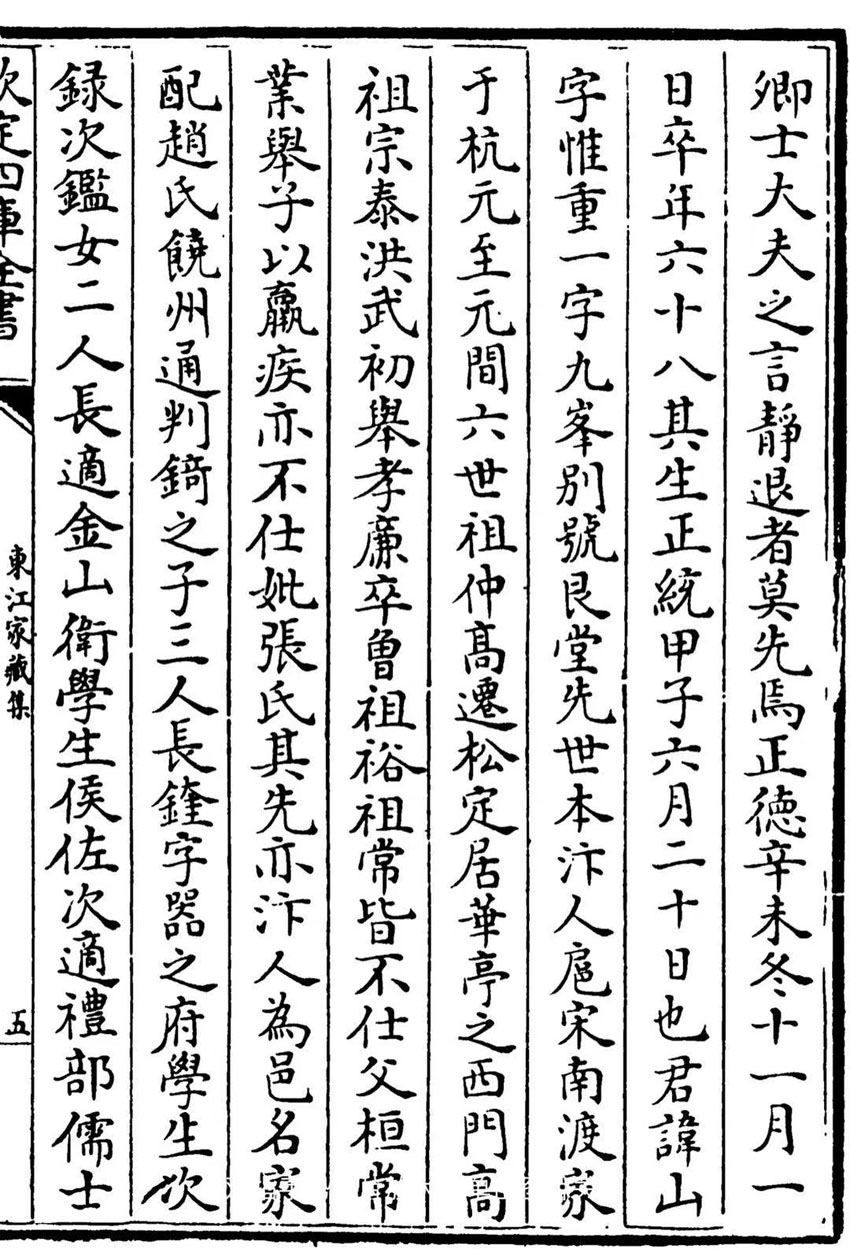 卿士大夫之言靜退者莫先焉正德辛未冬十一月一
日卒年六十八其生正統甲子六月二十日也君諱山
字惟重一字九峯別號艮堂先世本汴人扈宋南渡家
于杭元至元間六世祖仲高遷松定居華亭之西門高
祖宗泰洪武初舉孝廉卒曾祖裕祖常皆不仕父桓常
業舉子以羸疾亦不仕妣張氏其先亦汴人為邑名家
配趙氏饒州通判錡之子三人長鏠字器之府學生次
録次鑑女二人長適金山衛學生侯佐次適禮部儒士
欽定四庫全書
東江家藏集
五